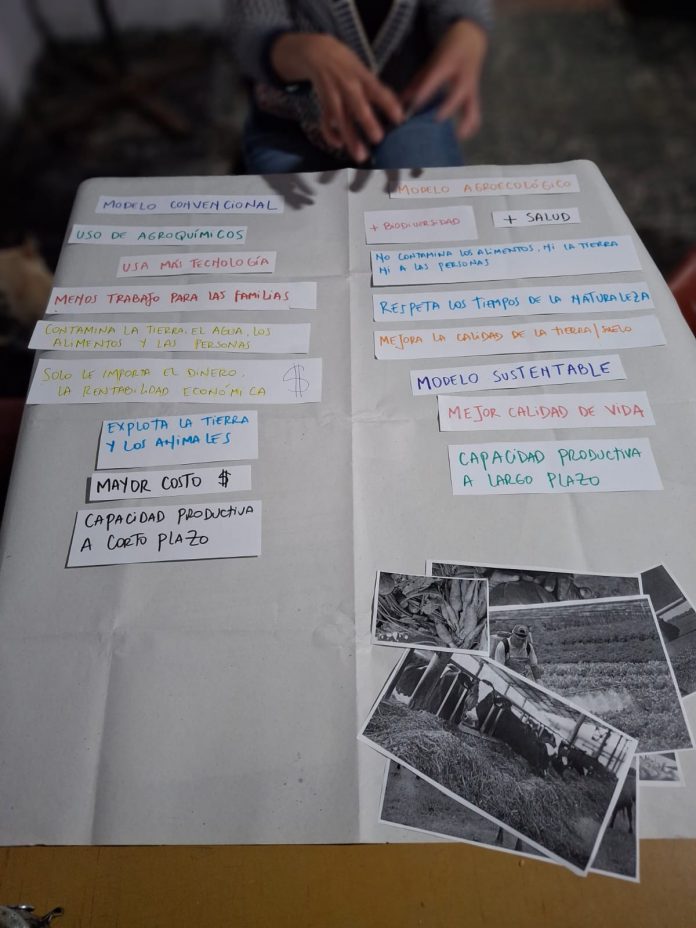 MODELO CONVENCIONAL
USO DE AGROQUÍMICOS
USA MÁS TECNOLOGÍA
MENOS TRABAJO PARA LAS FAMILIAS
CONTAMINA LA TIERRA, EL AGUA, LOS
ALIMENTOS Y LAS PERSONAS
SOLO LE IMPORTA EL DINERO,
LA RENTABILIDAD ECONÓMICA $
EXPLOTA LA TIERRA
Y LOS ANIMALES
MAYOR COSTO $
CAPACIDAD PRODUCTIVA
A CORTO PLAZO
MODELO AGROECOLÓGICO
+ BIODIVERSIDAD
+ SALUD
NO CONTAMINA LOS ALIMENTOS, NI LA TIERRA
NI A LAS PERSONAS
RESPETA LOS TIEMPOS DE LA NATURALEZA
MEJORA LA CALIDAD DE LA TIERRA/SUELO
MODELO SUSTENTABLE
MEJOR CALIDAD DE VIDA
CAPACIDAD PRODUCTIVA
A LARGO PLAZO